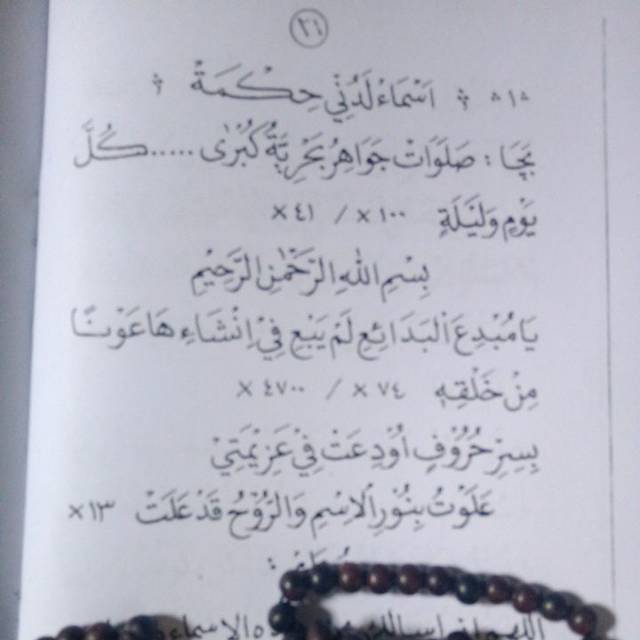 ٢٦
٥١٥ ؛ اَسْمَاءْ لَدُنِّي حِكْمَةْ ؛
بَچَا : صَلَوَاتْ جَوَاهِرْ بَحْرِيَّةْ كُبْرٰى ..... كُلَّ
يَوْمٍ وَلَيْلَةٍ ١٠٠ × / ٤١ ×
بِسْمِ اللهِ الرَّحْمٰنِ الرَّحِيْمِ
يَا مُبْدِعَ الْبَدَائِعِ لَمْ يَبْغِ فِيْ اِنْشَاءِ هَا عَوْنًا
مِنْ خَلْقِهِ ٧٤ × / ٤٧٠٠ ×
بِسِرِّ حُرُوْفٍ اُوْدِعَتْ فِيْ عَزِيْمَتِيْ
عَلَوْتُ بِنُوْرِ الْاِسْمِ وَالرُّوْحُ قَدْ عَلَتْ ١٣ ×